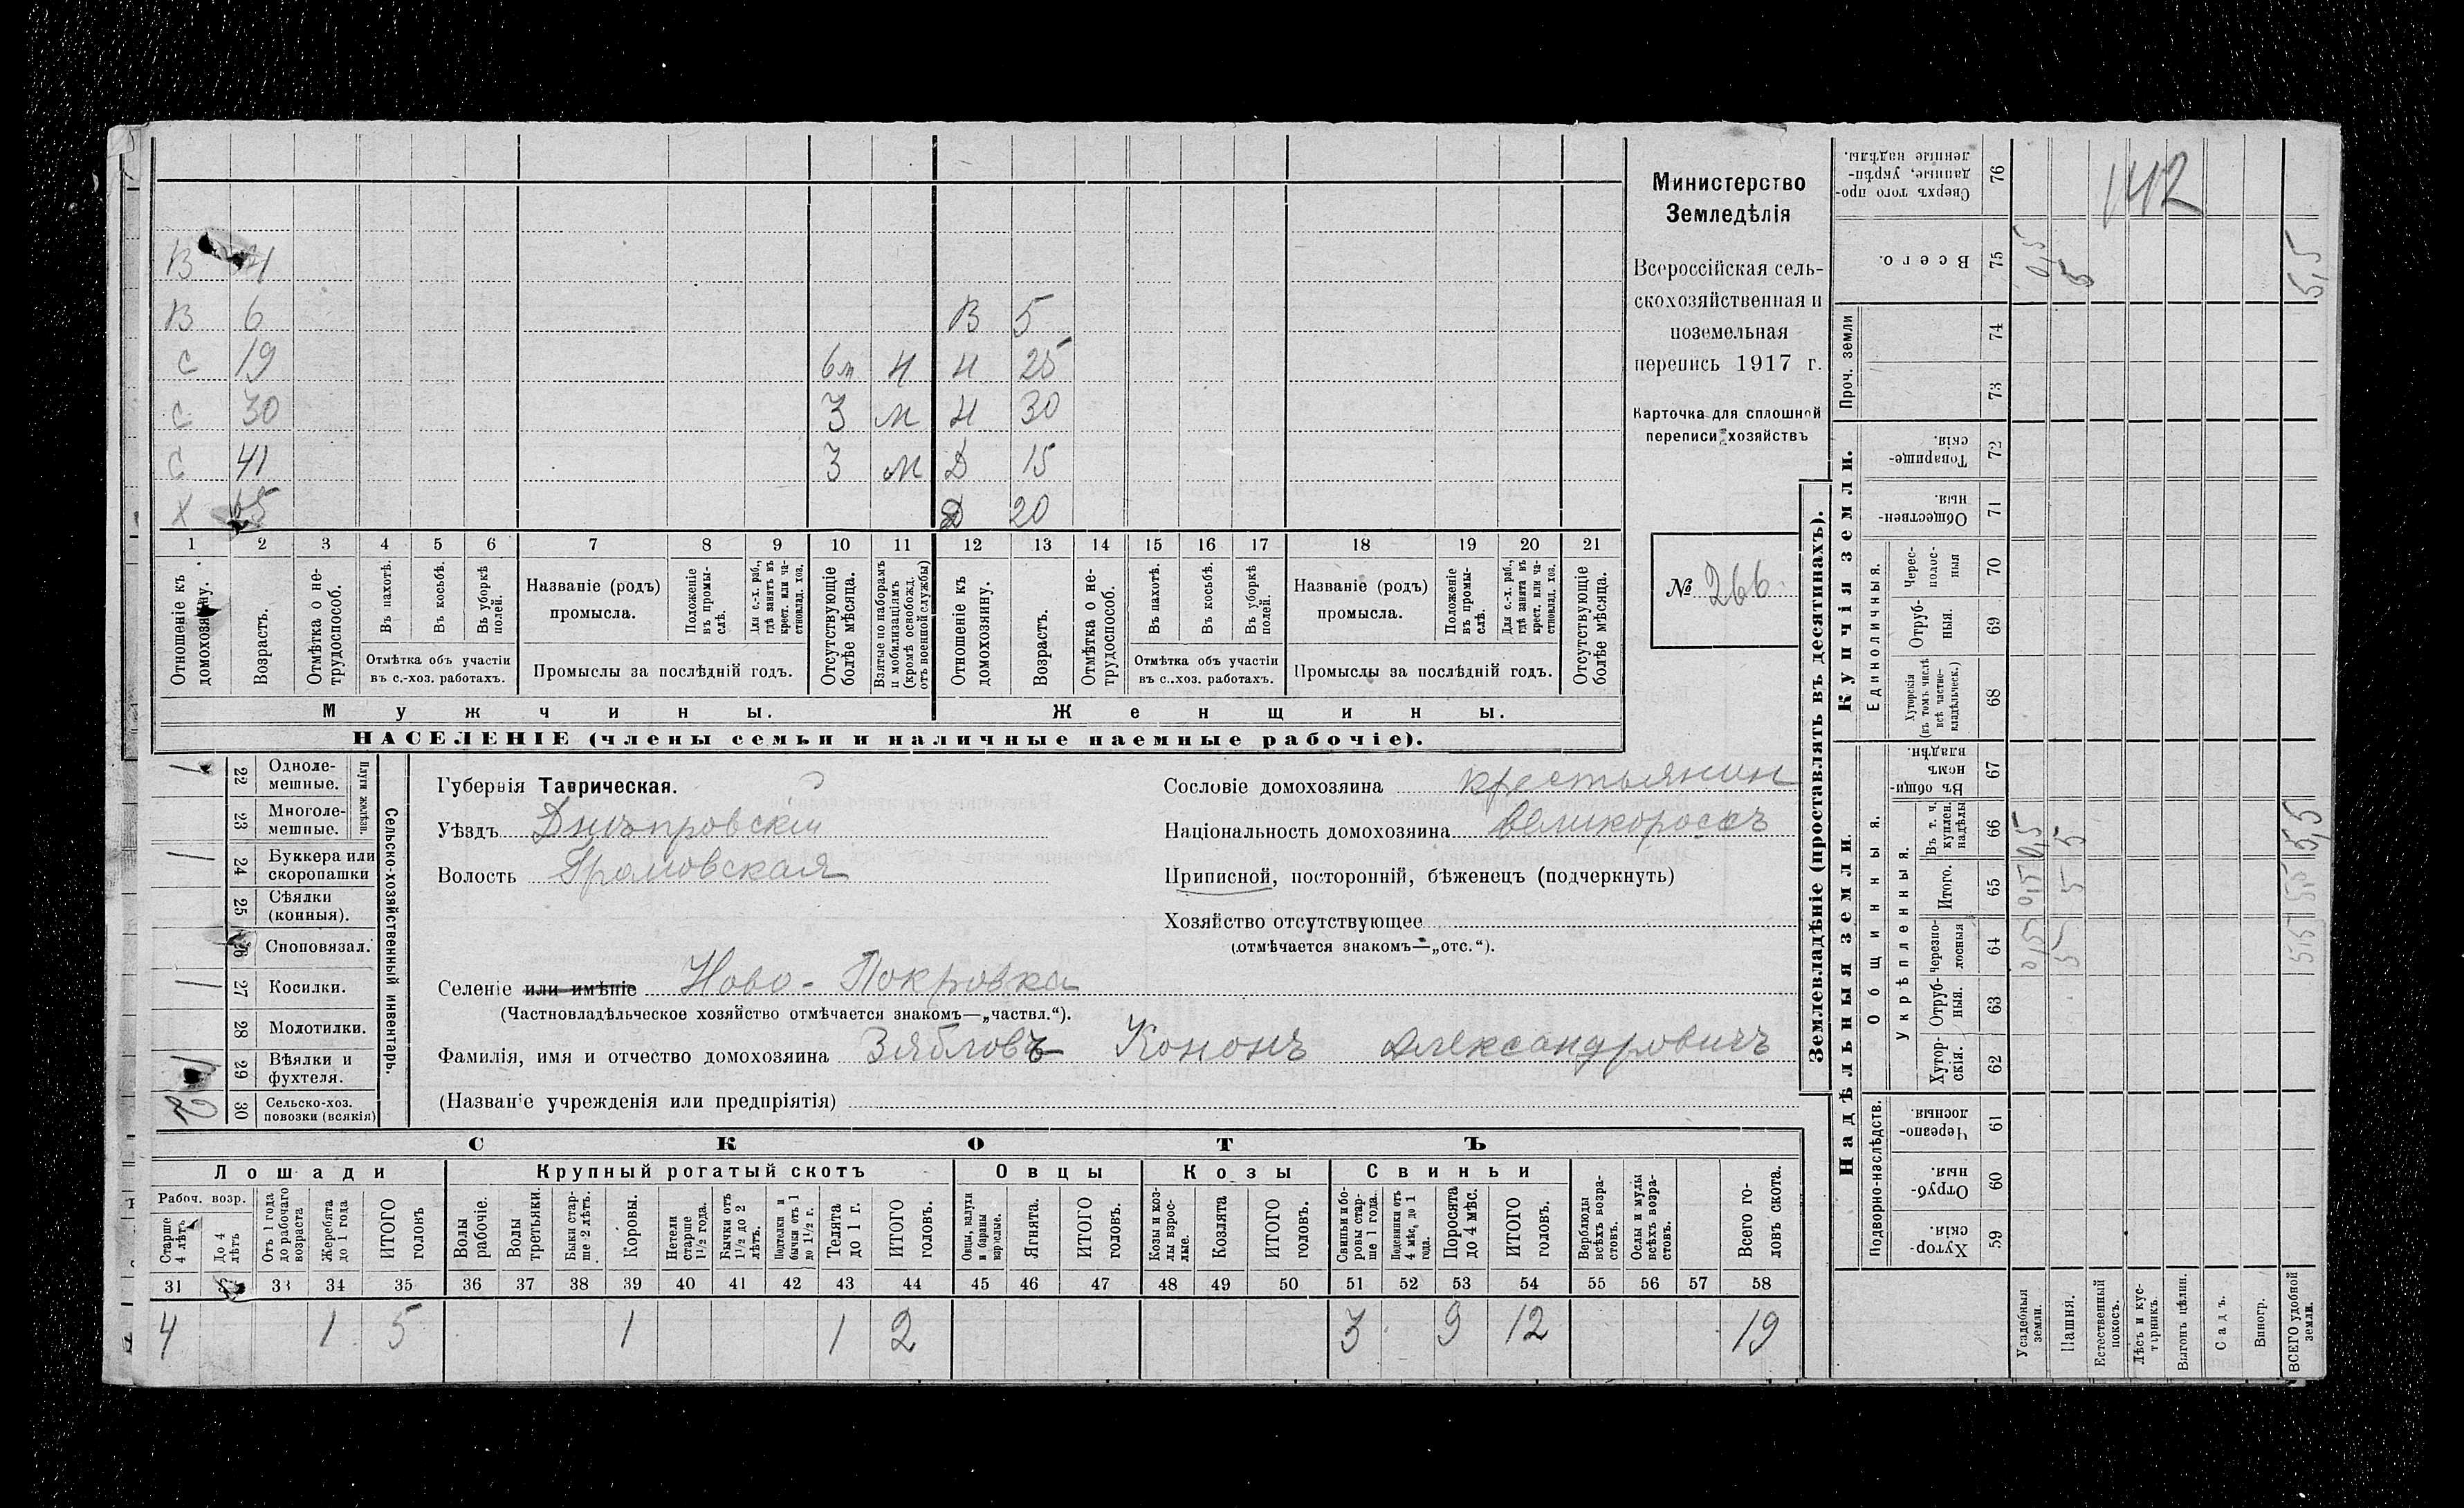 В 4
В 6 В 5
С 19 6м Н Н 25
С 30 3 М Н 30
С 41 3 М Д 15
Х 65 Д 20
1 2 3 4 5 6 7 8 9 10 11 12 13 14 15 16 17 18 19 20 21
Отношеніе къ домохозяину.
Возрастъ.
Отмѣтка о не-
трудоспособ.
Въ пахотѣ.
Въ косьбѣ.
Въ уборкѣ
полей.
Отмѣтка объ участіи
въ с.-хоз. работахъ.
Названіе (родъ)
промысла.
Положеніе
въ промы-
слѣ.
Для с.-х. раб.,
гдѣ занятъ въ
крест. или ча-
стновлад. хоз.
Промыслы за послѣдній годъ.
Отсутствующіе
болѣе мѣсяца.
Взятые по наборамъ
и мобилизаціямъ
(кромѣ освобожд.
отъ военной службы)
Отношеніе къ
домохозяину.
Возрастъ.
Отмѣтка о не-
трудоспособ.
Въ пахотѣ.
Въ косьбѣ.
Въ уборкѣ
полей.
Отмѣтка объ участіи
въ с..хоз. работахъ.
Названіе (родъ)
промысла.
Положеніе
въ промы-
слѣ.
Для с.-х. раб.,
гдѣ занятъ въ
крест. или ча-
стновлад. хоз.
Промыслы за послѣдній годъ.
Отсутствующіе
болѣе мѣсяца.
Мужчины.
Женщины.
НАСЕЛЕНІЕ (члены семьи и наличные наемные рабочіе).
Министерство
Земледѣлія
Всероссійская сель-
скохозяйственная и
поземельная
перепись 1917 г.
Карточка для сплошной
переписи хозяйствъ
№ 266.
1 22 Одноле-
мешные.
23 Многоле-
мешные.
Плуги желѣзн.
1 24 Буккера или
скоропашки
25 Сѣялки
(конныя).
26 Сноповязал.
1 27 Косилки.
28 Молотилки.
1 29 Вѣялки и
фухтеля.
2 30 Сельско-хоз.
повозки (всякія)
Сельско-хозяйственный инвентарь.
Губернія Таврическая.
Уѣздъ Днѣпровскій
Волость Громовская
Сословіе домохозяина крестьянин
Національность домохозяина великороссъ
Приписной, посторонній, бѣженецъ (подчеркнуть)
Хозяйство отсутствующее
(отмѣчается знакомъ—„отс.“).
Селеніе или имѣніе Ново-Покровка
(Частновладѣльческое хозяйство отмѣчается знакомъ—„частвл.“).
Фамилія, имя и отчество домохозяина Зябловъ Кононъ Александровичъ
(Названіе учрежденія или предпріятія)
СКОТЪ
Лошади Крупный рогатый скотъ Овцы Козы Свиньи
Рабоч. возр.
Старше
4 лѣтъ
До 4
лѣтъ
Отъ 1 года
до рабочаго
возраста
Жеребята
до 1 года
ИТОГО
головъ
Волы
рабочіе.
Волы
третьяки.
Быки стар-
ше 2 лѣтъ.
Коровы.
Нетели
старше
1½ года.
Бычки отъ
1½ до 2
лѣтъ.
Подтелки и
бычки отъ 1
до 1½ г.
Телята
до 1 г.
ИТОГО
головъ.
Овцы, валухи
и бараны
взрослые.
Ягнята.
ИТОГО
головъ.
Козы и коз-
лы взрос-
лые.
Козлята
ИТОГО
головъ.
Свиньи и бо-
ровы стар-
ше 1 года.
Подсвинки отъ
4 мѣс. до 1
года.
Поросята
до 4 мѣс.
ИТОГО
головъ.
Верблюды
всѣхъ возра-
стовъ.
Ослы и мулы
всѣхъ возра-
стовъ.
Всего го-
ловъ скота.
31 33 34 35 36 37 38 39 40 41 42 43 44 45 46 47 48 49 50 51 52 53 54 55 56 57 58
4 1 5 1 1 2 3 9 12 19
Землевладѣніе (проставлять въ десятинахъ).
Надѣльныя земли. Купчія земли. Проч. земли
Подворно-наслѣдств. Общинныя. Укрѣпленныя. Единоличныя.
Сверхъ того про-
данные, укрѣп-
ленные надѣлы. 76 142
Всего. 75 0,5 5 5,5
74
73
Товарище-
скія. 72
Обществен-
ныя. 71
Черес-
полос-
ныя 70
Отруб-
ныя. 69
Хуторскія
(въ томъ числѣ
всѣ частно-
владѣльческ.) 68
Въ общи-
номъ
владѣн. 67
Въ т. ч.
куплен.
надѣлы 66 0,5 5 5,5
Итого. 65 0,5 5 5,5
Черезпо-
лосныя 64 0,5 5 5,5
Отруб-
ныя. 63
Хутор-
скія. 62
Черезпо-
лосныя. 61
Отруб-
ныя. 60
Хутор-
скія. 59
Усадебныя
земли.
Пашня.
Естественный
покосъ.
Лѣсъ и кус-
тарникъ.
Выгонъ цѣлин.
Садъ.
Виногр.
ВСЕГО удобной
земли.